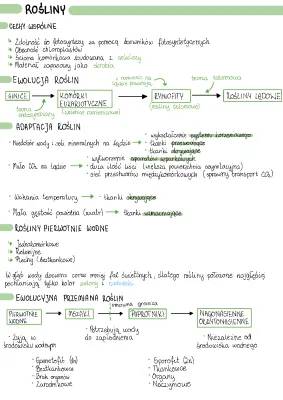 ROŚLINY
CECHY WSPÓLNE
↳ Zdolność do fotosyntezy za pomocą barwników fotosyntetycznych
↳ Obecność chloroplastów
↳ Ściana komórkowa zbudowana z celulozy
↳ Materiał zapasowy jako skrobia
EWOLUCJA ROŚLIN
z nowości na lądzie
teoria telomowa
SINICE → KOMÓRKI EUKARIOTYCZNE → RYNIOFITY → ROŚLINY LĄDOWE
teoria endosymbiozy
(rośliny telomowe)
ADAPTACJA ROŚLIN
• Niedobór wody i soli mineralnych na lądzie →
• wykształcenie systemu korzeniowego
• tkanki przewodzące
• tkanki okrywające
• Mało CO₂ na lądzie →
• wytworzenie aparatów szparkowych
• duża ilość liści (większa powierzchnia asymilacyjna)
• sieć przestworów międzykomórkowych (sprawny transport CO₂)
• Wahania temperatury → tkanki okrywające
• Mała gęstość powietrza (wiatr) → tkanki wzmacniające
ROŚLINY PIERWOTNIE WODNE
↳ Jednokomórkowe
↳ Kolonijne
↳ Plechy (beztkankowe)
W głąb wody dociera coraz mniej fal świetlnych, dlatego rośliny położone najgłębiej
pochłaniają tylko kolor zielony i niebieski
EWOLUCYJNA PRZEMIANA ROŚLIN
umowna granica
PIERWOTNIE WODNE → MSZAKI → PAPROTNIKI → NAGONASIENNE OKRYTONASIENNE
• Żyją w środowisku wodnym
• Potrzebują wody do zapłodnienia
• Niezależne od środowiska wodnego
• Gametofit (n)
• Beztkankowe
• Brak organów
• Zarodnikowe
• Sporofit (2n)
• Tkankowe
• Organy
• Naczyniowe